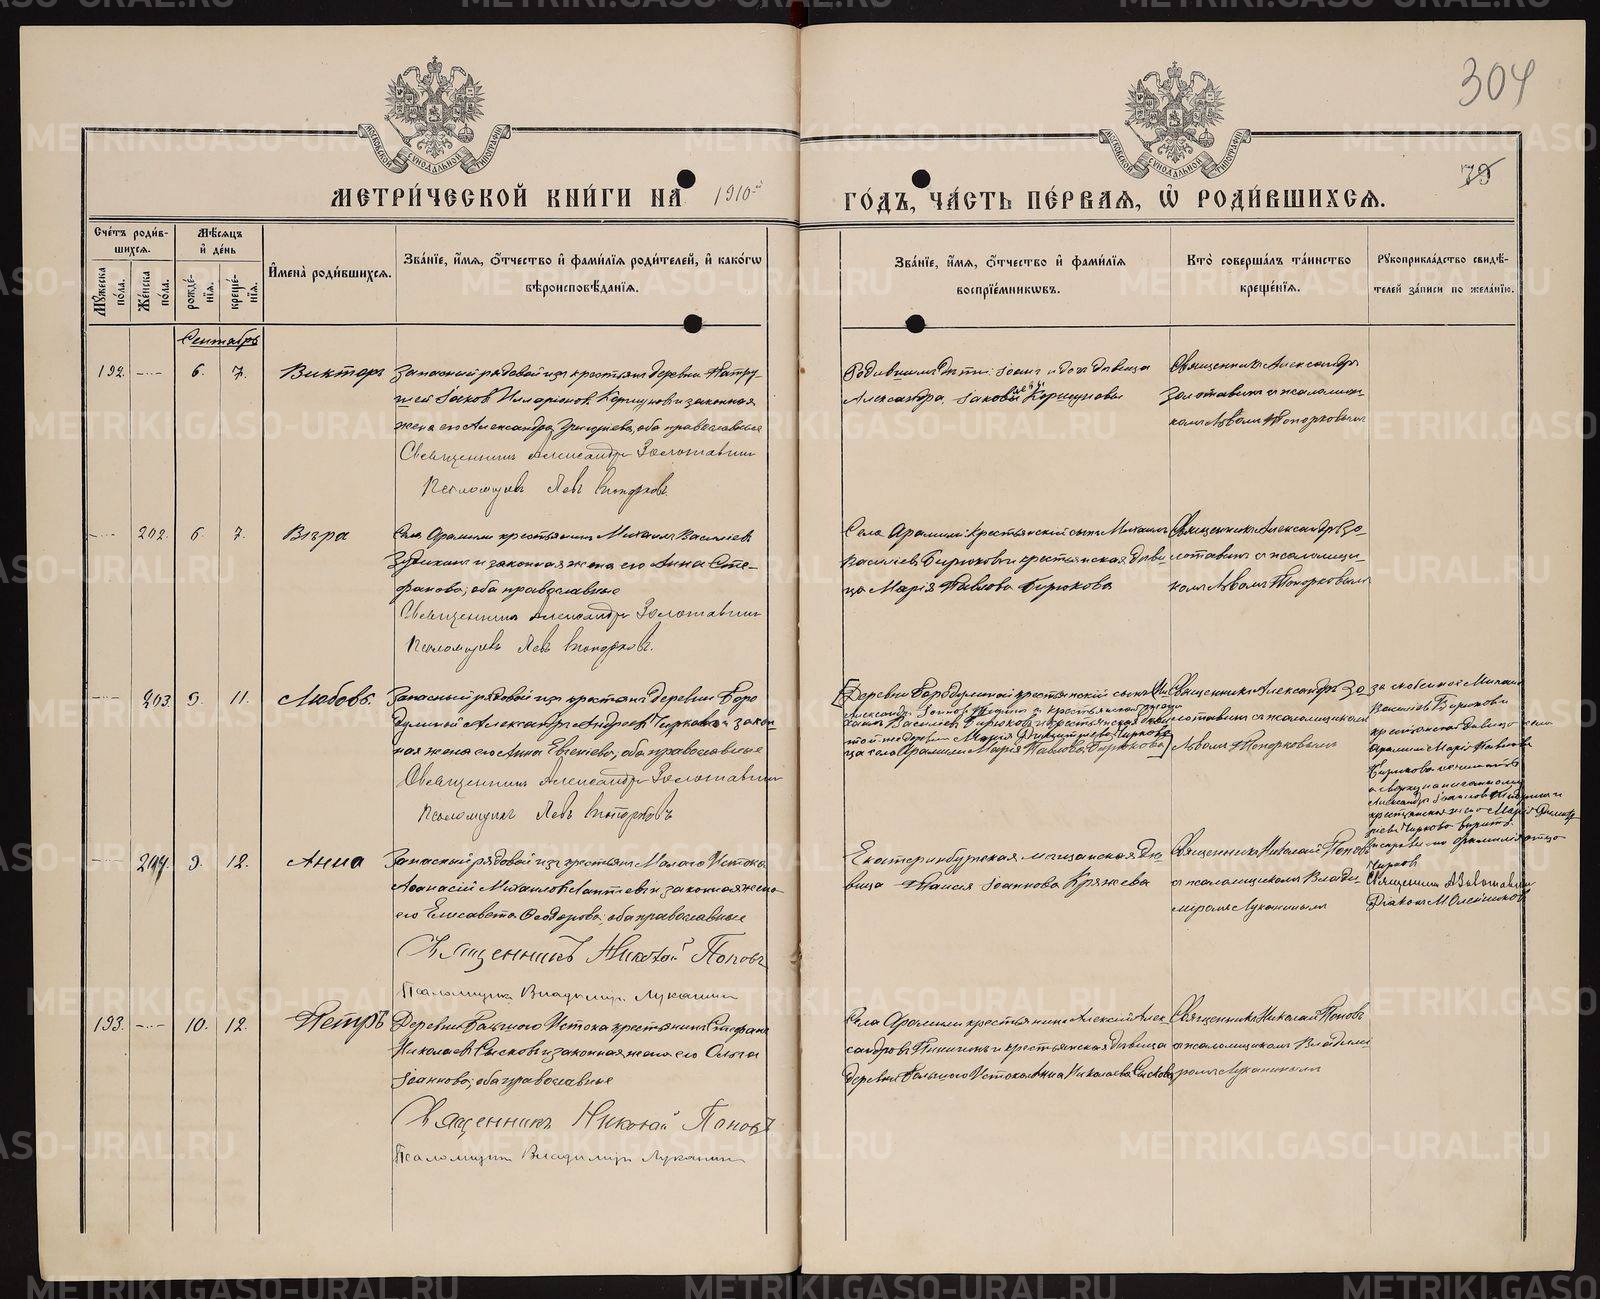 304
79
МОСКОВСКОЙ СѴНОДАЛЬНОЙ ТИПОГРАФІИ
МОСКОВСКОЙ СѴНОДАЛЬНОЙ ТИПОГРАФІИ
МЕТРИ́ЧЕСКОЙ КНИ́ГИ НА 1910-й
ГО́ДЪ, ЧА́СТЬ ПЕ́РВАѦ, Ѡ҆ РОДИ́ВШИХСѦ.
Сче́тъ роди́в-
шихсѧ.
Мꙋ́жеска по́ла.
Же́нска по́ла.
Мѣ́сѧцъ
и҆ де́нь
рожде́-
нїѧ.
креще́-
нїѧ.
И҆мена̀ роди́вшихсѧ.
Зва́нїе, и҆́мѧ, ѻ҆́тчество и҆ фами́лїѧ роди́телей, и҆ како́гѡ
вѣроисповѣ́данїѧ.
Зва́нїе, и҆́мѧ, ѻ҆́тчество и҆ фами́лїѧ
воспрїе́мникѡвъ.
Кто̀ соверша́лъ та́инство
креще́нїѧ.
Рꙋкоприкла́дство свидѣ́-
телей за́писи по жела́нїю.
Сентябрь
192. 6. 7. Викторъ
Запасный рядовой изъ крестьянъ деревни Патру-
шей Іаковъ Илларіоновъ Коршуновъ и законная
жена его Александра Григорьева, оба православные
Священникъ Александръ Золотавинъ
Псаломщикъ Левъ Топорковъ.
Александра Іаковлевы Коршуновы
Священникъ Александръ
Золотавинъ съ псаломщи-
комъ Львомъ Топорковымъ
202. 6. 7. Вѣра
Села Арамили крестьянинъ Михаилъ Васильевъ
и законная жена его Анна Сте-
фанова, оба православные
Священникъ Александръ Золотавинъ
Псаломщикъ Левъ Топорковъ.
Села Арамили крестьянскій сынъ Михаилъ
Васильевъ Бирюковъ и крестьянская дѣви-
ца Марія Павлова Бирюкова
Священникъ Александръ Зо-
лотавинъ съ псаломщи-
комъ Львомъ Топорковымъ
203. 9. 11. Любовь.
Запасный рядовой изъ крестьянъ деревни Боро
дулиной Александръ Андреевъ Чирковъ и закон-
ная жена его Анна Евгеніева, оба православные
Священникъ Александръ Золотавинъ
Псаломщикъ Левъ Топорковъ
Деревни Бородулиной крестьянскій сынъ
Васильевъ Бирюковъ и крестьянская дѣви
той же деревни Марія Димитріева Чиркова
ца села Арамили Марія Павлова Бирюкова
Священникъ Александръ Зо-
лотавинъ съ псаломщикомъ
Львомъ Топорковымъ
Михаилъ
Васильевъ Бирюковъ
крестьянская дѣвица села
Арамили Марія Павлова
Бирюкова
Чирковъ
Священникъ А Золотавинъ
Діаконъ
204. 9. 12. Анна
Запасный рядовой изъ крестьянъ Малаго Истока
Аѳанасій Михаиловъ Лаптевъ и законная жена
его Елисавета Ѳеодорова, оба православные
Священникъ Николай Поповъ
Псаломщикъ Владиміръ Луканинъ
Екатеринбургская мѣщанская дѣ
вица Таисія Іоаннова Кряжева
Священникъ Николай Поповъ
съ псаломщикомъ Влади-
міромъ Луканинымъ
193. 10. 12. Петръ
Деревни Большого Истока крестьянинъ Стефанъ
Николаевъ Сысковъ и законная жена его Ольга
Іоаннова, оба православные
Священникъ Николай Поповъ
Псаломщикъ Владиміръ Луканинъ
Села Арамили крестьянинъ Алексій Алек-
сандровъ и крестьянская дѣвица
деревни Большого Истока Анна Николаева Сыскова
Священникъ Николай Поповъ
съ псаломщикомъ Владими-
ромъ Луканинымъ
METRIKI.GASO-URAL.RU